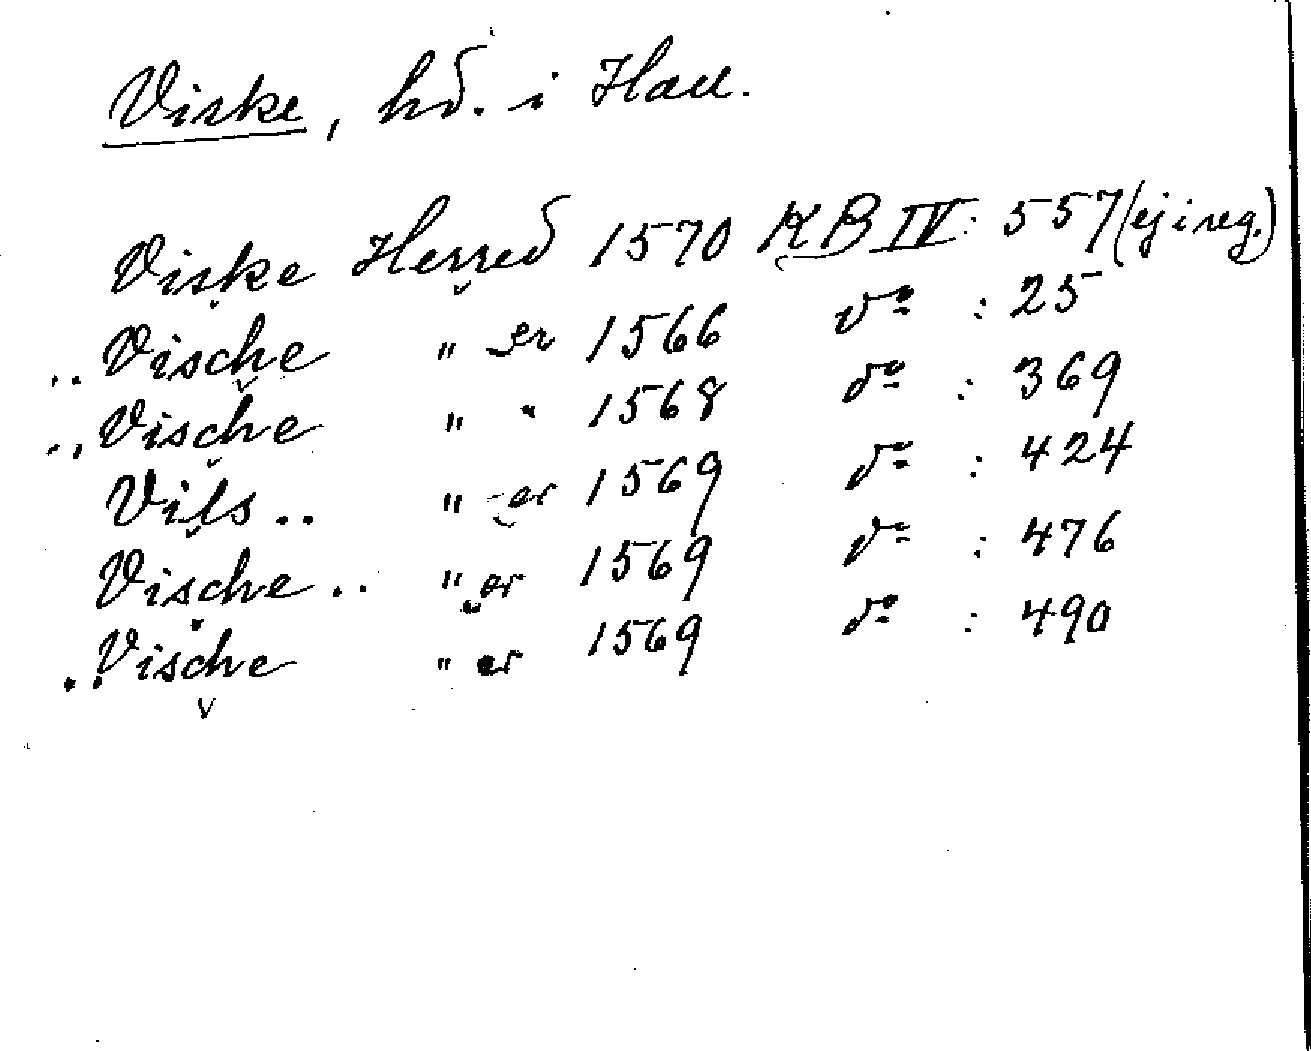 Viske, hd. i Hall.
Viske Herred 1570 KB IV: 557 (ej i reg.)
.. Vische " er 1566 do : 25
.. Vische " " 1568 do : 369
Vils .. " er 1569 do : 424
Vische .. " er 1569 do : 476
.. Vische " er 1569 do : 490